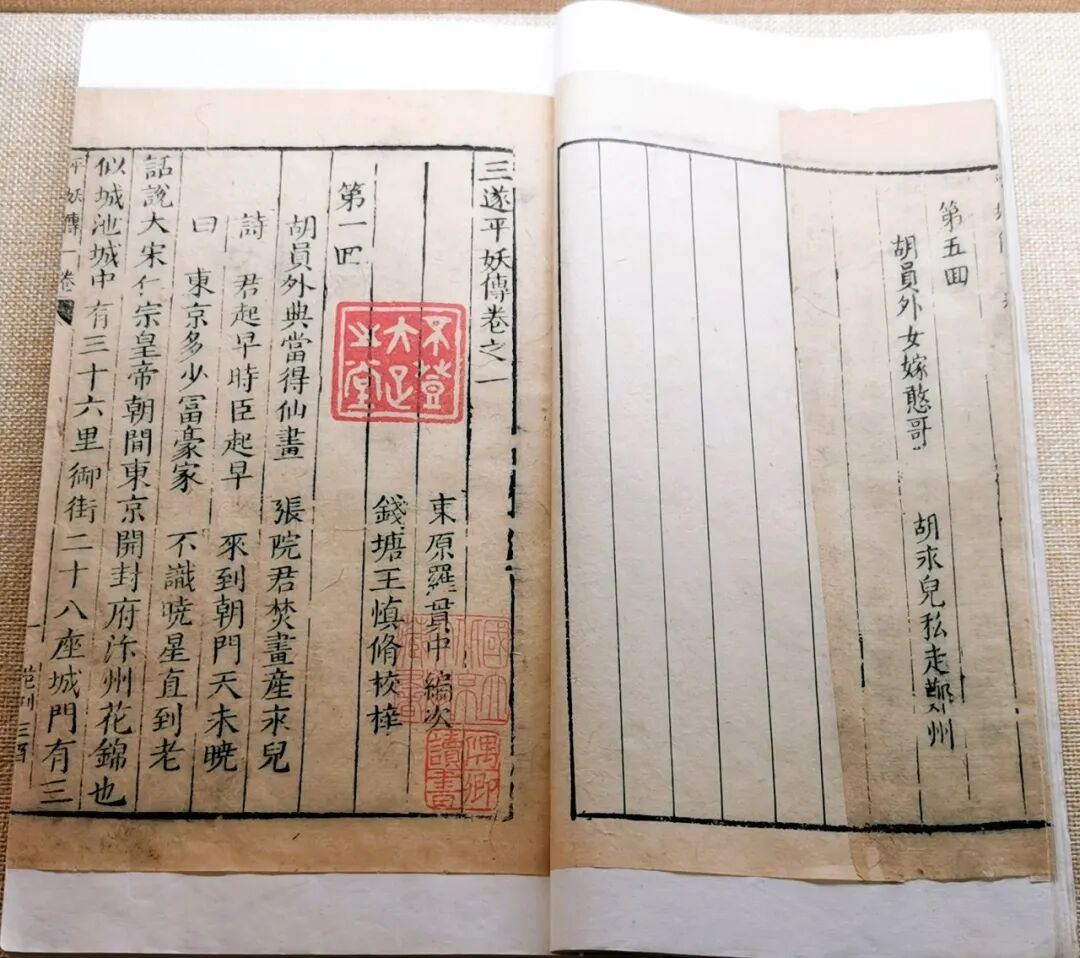 第五回
胡員外女嫁憨哥　胡永兒私走鄭州
三遂平妖傳卷之一
東原羅貫中編次
錢塘王慎脩校梓
第一回
胡員外典當得仙畫　張院君焚畫産永兒
詩　君起早時臣起早　來到朝門天未曉
曰　東京多少冨豪家　不識曉星直到老
話說大宋仁宗皇帝朝間東京開封府汴州花錦也
似城池城中有三十六里御街二十八座城門有三
平妖傳一卷
不登大疋之堂
隅卿讀書